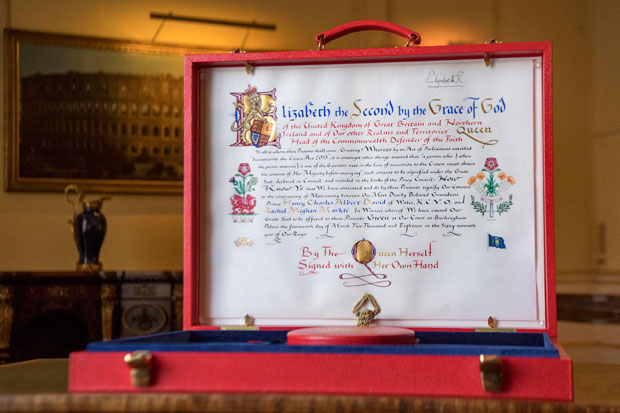 Elizabeth R
Elizabeth the Second by the Grace of God
of the United Kingdom of Great Britain and Northern
Ireland and of Our other Realms and Territories Queen
Head of the Commonwealth Defender of the Faith
To all to whom these Presents shall come Greeting! Whereas by an Act of Parliament entituled
Succession to the Crown Act 2013 it is amongst other things enacted that a person who (when
the person marries) is one of the 6 persons next in the line of succession to the Crown must obtain
the consent of Her Majesty before marrying such consent to be signified under the Great
Seal declared in Council and recorded in the books of the Privy Council: Now
Know Ye that We have consented and do by these Presents signify Our Consent
to the contracting of Matrimony between Our Most Dearly Beloved Grandson
Prince Henry Charles Albert David of Wales, K.C.V.O., and
Rachel Meghan Markle In Witness whereof We have caused Our
Great Seal to be affixed to these Presents Given at Our Court at Buckingham
Palace the fourteenth day of March Two Thousand and Eighteen in the Sixty-seventh
year of Our Reign
By The Queen Herself
Signed with Her Own Hand